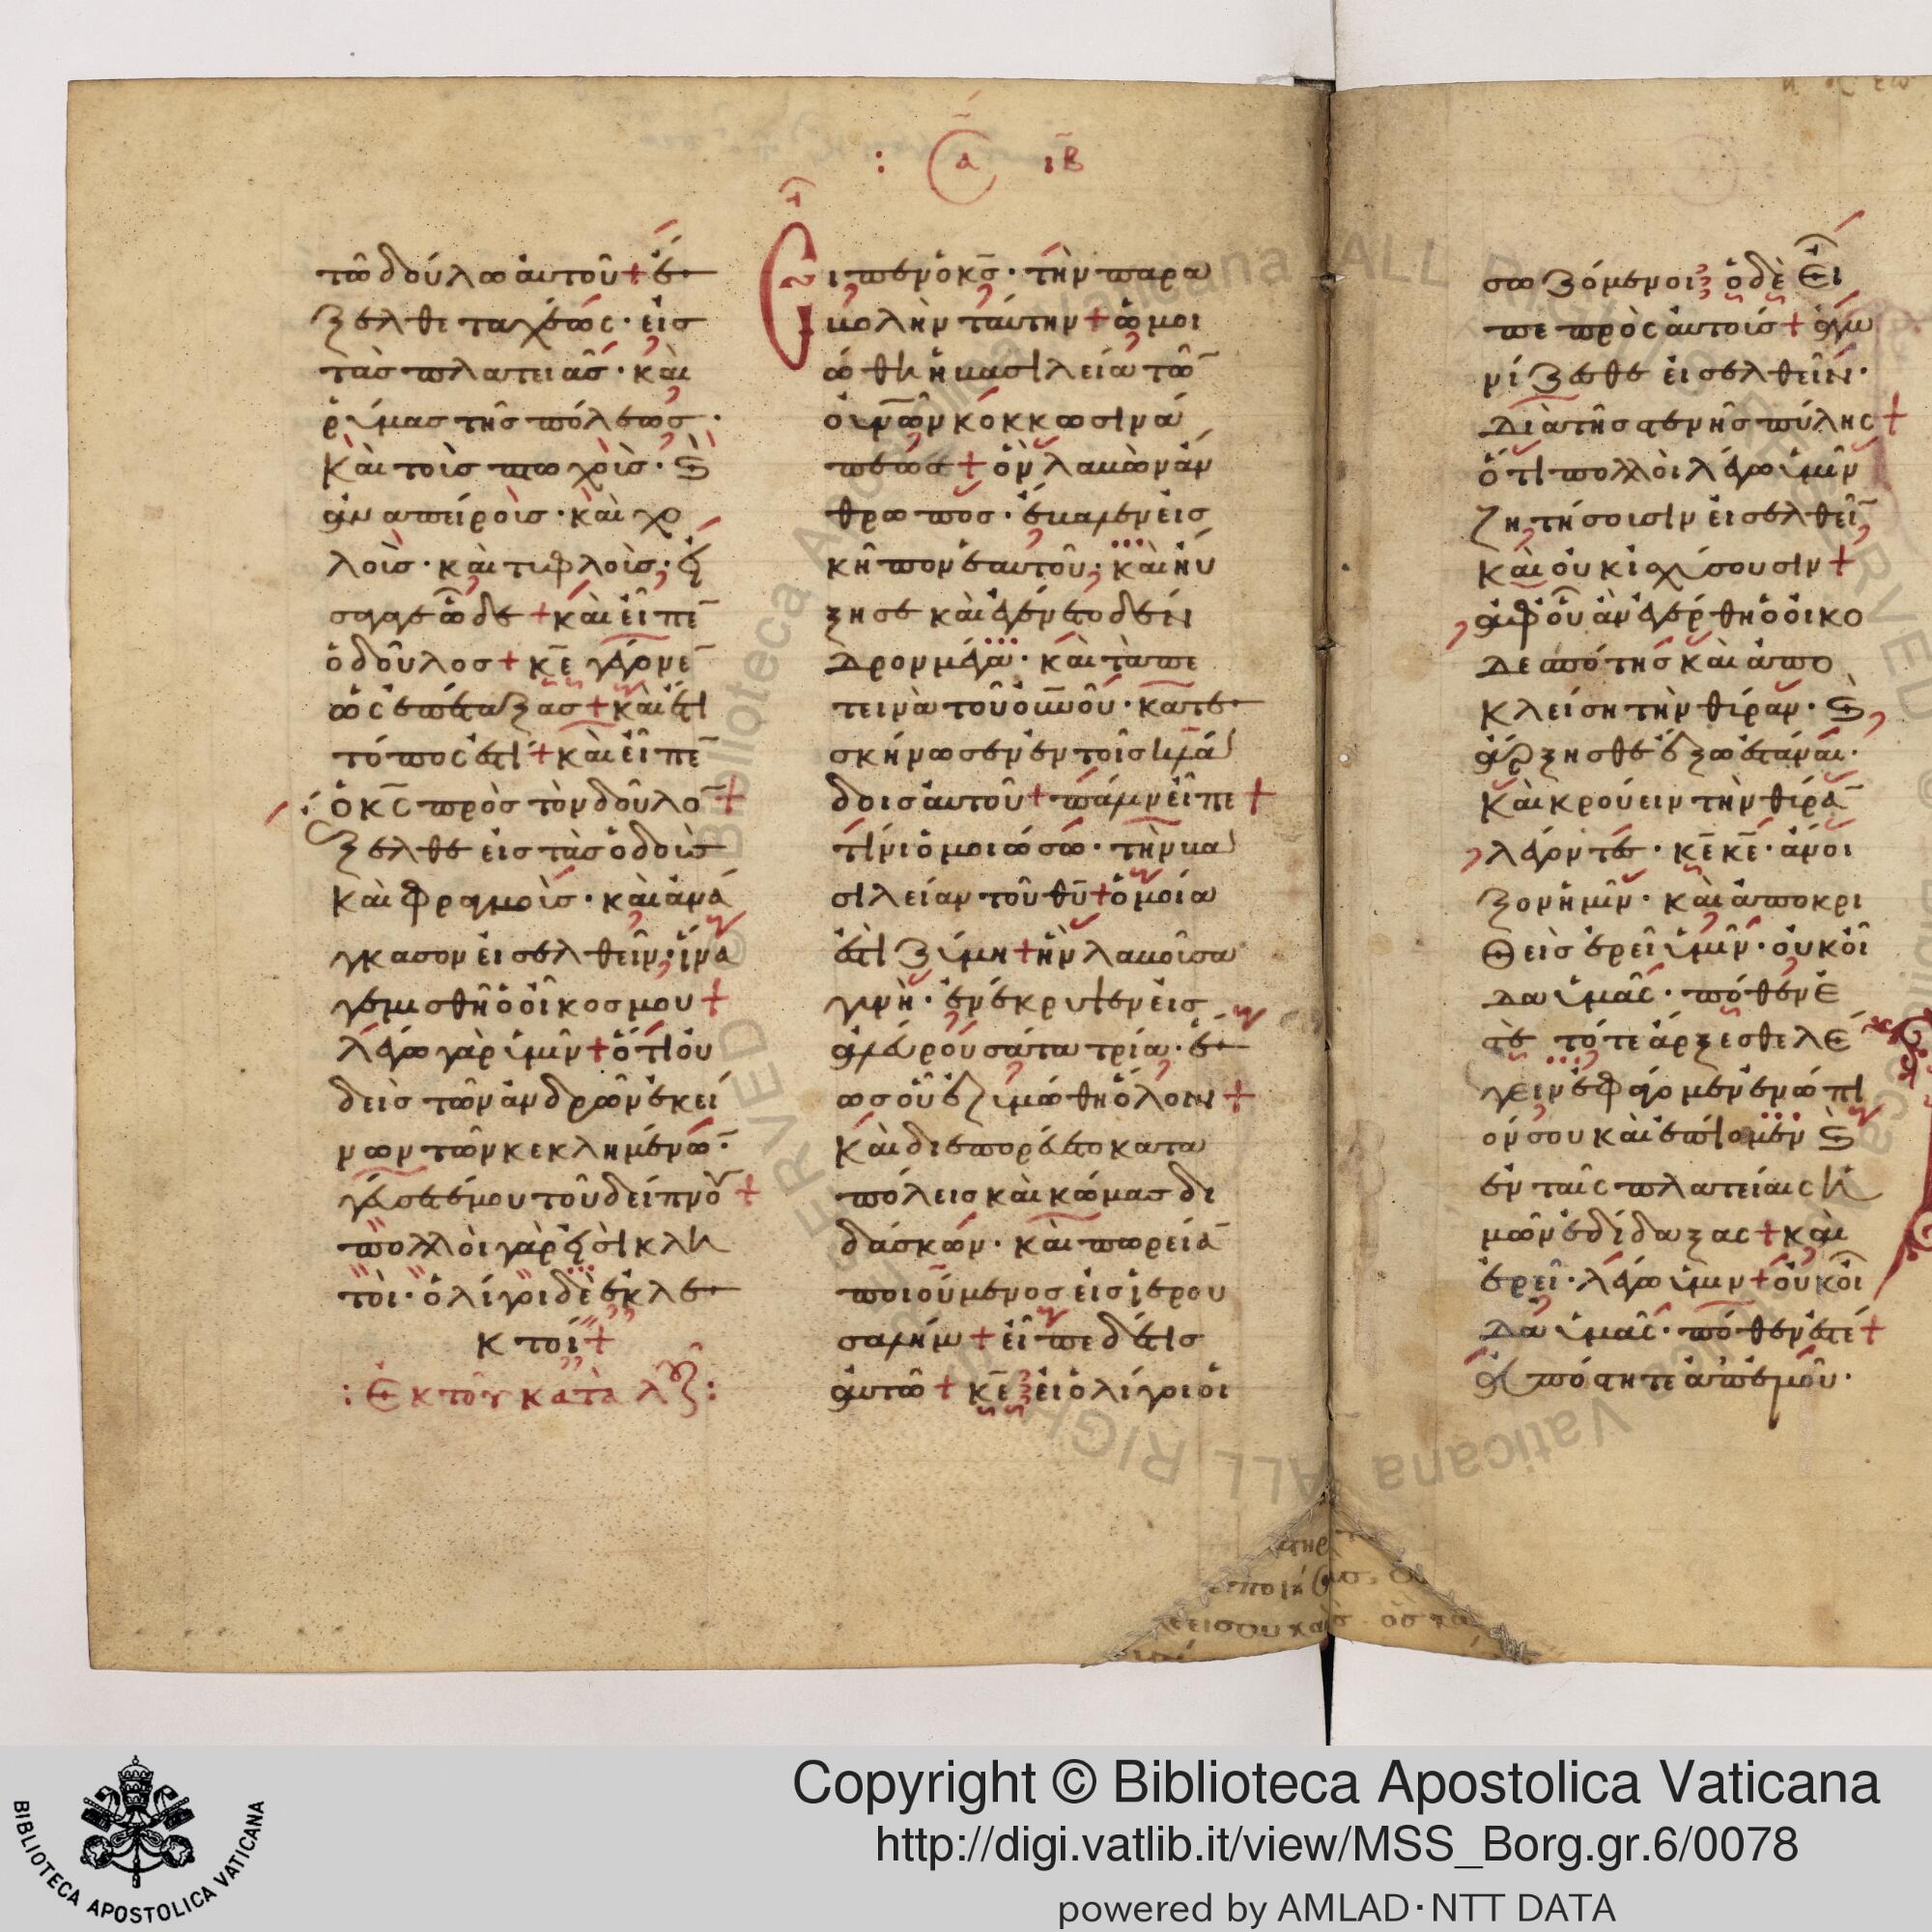 : α ιβ
τῶ δούλω ἀυτοῦ + ἔ
ξελθε ταχέως · εἰσ
τὰσ πλατείασ · κὰι
ῥύμασ τῆσ πόλεωσ ·
κὰι τοὶσ πτωχοὶσ · Ϛ
ἀναπείροισ · κὰι χο
λοὶσ · κὰι τυφλοὶσ · ἐί
σαγαγε ὧδε + κὰι ἐῖπε̄
ὁ δοῦλοσ + κ̄ε γέγονε̄
ὡς ἐπέταξασ + κὰι ἔτι
τόπος ἐστὶ + κὰι ἐῖπε̄
ὁ κ̄ς πρὸσ τὸν δοῦλο̄ +
ἔξελθε εἰσ τὰσ ὁδοὺσ
κὰι φραγμοὶσ · κὰι ἀνά
γκασον ἐισελθεῖν · ἵνα
γεμισθῆ ὁ οἶκοσ μου +
λέγω γὰρ ὑμῖν + ὅτι ὀυ
δεὶσ τῶν ἀνδρῶν ἐκεί
νων τῶν κεκλημένω̄ ·
γέυσεταί μου τοῦ δείπνου +
πολλὸι γὰρ ἐισὶ κλη
τὸι · ὀλίγοι δὲ ἐκλε
κτοί +
: Ἐκ τοῦ κατὰ λουκ :
Ειπεν ὁ κ̄ς · τὴν παρα
βολὴν τάυτην + ὡμοι
ώθη ἡ βασιλεία τῶ̄
ὀυνῶν κόκκω σινά
πεωσ + ὃν λαβὼν ἄν
θρωποσ · ἔβαλεν εἰσ
κῆπον ἑαυτοῦ · κὰι ἠύ
ξησε κὰι ἐγένετο δέν
δρον μέγα · κὰι τὰ πε
τεινὰ τοῦ ὀυνοῦ · κατε
σκήνωσεν ἐν τοῖσ κλά
δοισ ἀυτοῦ + πάλιν ἐῖπε +
τίνι ὁμοιώσω · τὴν βα
σιλείαν τοῦ θ̄υ + ὁμοία
ἐστὶ ζύμη + ἣν λαβοῦσα
γυνὴ · ἐνέκρυψεν εἰσ
ἀλεύρου σάτα τρία · ἕ
ωσ οὗ ἐζυμώθη ὅλον +
κὰι διεπορέυετο κατα
πόλεισ κὰι κώμασ δι
δάσκων · κὰι πορείᾱ
ποιούμενοσ εἰσ ἱερου
σαλήμ + ἐῖπε δέ τισ
ἀυτῶ + κ̄ε ἐι ὀλίγοι ὁι
σωζόμενοι · ὁ δὲ Ἐῖ
πε πρὸς ἀυτούσ + ἀγω
νίζεσθε ἐισελθεῖν ·
Διὰ τῆσ στενῆσ πύλης +
ὅτι πολλὸι λέγω ὑμῖν
ζητήσουσιν ἐισελθεῖ̄
κὰι ὀυκ ἰσχύσουσιν +
ἀφ' ὁῦ ἂν ἐγερθῆ ὁ ὀικο
δεσπότησ κὰι ἀπο
κλείση τὴν θύραν · Ϛ
ἄρξησθε ἔξω ἑστάναι ·
Κὰι κρούειν τὴν θύρᾱ
λέγοντεσ · κ̄ε κ̄ε · ἄνοι
ξον ἡμῖν · κὰι ἀποκρι
Θεὶσ ἐρεῖ ὑμῖν · ὀυκ ὀῖ
Δα ὑμᾶς · πόθεν Ε
στὲ τότε ἄρξεσθε λΕ
γειν ἐφάγομεν ἐνώπι
όν σου κὰι ἐπίομεν Ϛ
ἐν ταῖς πλατείαις ἡ
μῶν ἐδίδαξας + κὰι
ἐρεῖ · λέγω ὑμιν + ὀυκ ὀῖ
Δα ὑμᾶς · πόθεν ἐστέ +
ἀπόστητε ἀπ' ἐμοῦ ·
BIBLIOTECA APOSTOLICA VATICANA
Copyright © Biblioteca Apostolica Vaticana
http://digi.vatlib.it/view/MSS_Borg.gr.6/0078
powered by AMLAD·NTT DATA